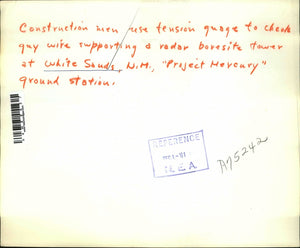 Construction men use tension guage to check
guy wire supporting a radar boresite tower
at White Sands, N.M., "Project Mercury"
ground station.
REFERENCE
N E A
A75242